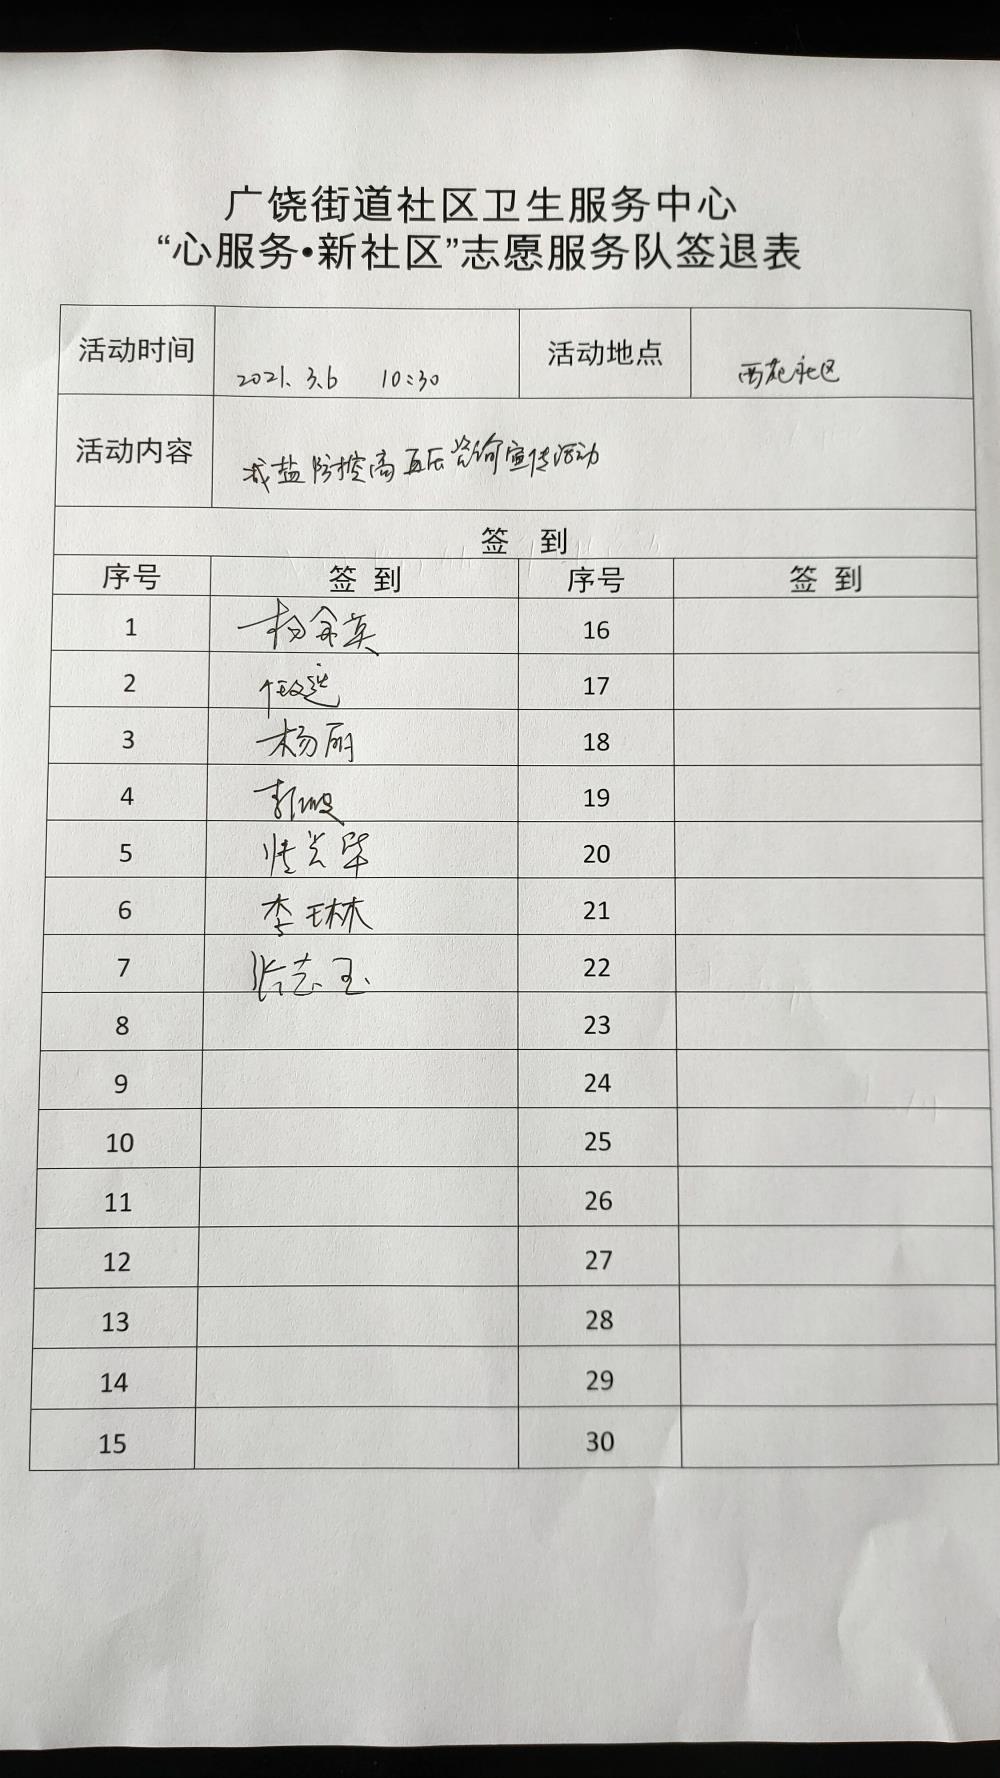 广饶街道社区卫生服务中心
“心服务•新社区”志愿服务队签退表
活动时间 2021.3.6 10:30 活动地点 西苑社区
活动内容 减盐防控高血压咨询宣传活动
签 到
序号 签 到 序号 签 到
1 杨金英 16
2 17
3 杨丽 18
4 19
5 20
6 李琳 21
7 张志玉 22
8 23
9 24
10 25
11 26
12 27
13 28
14 29
15 30